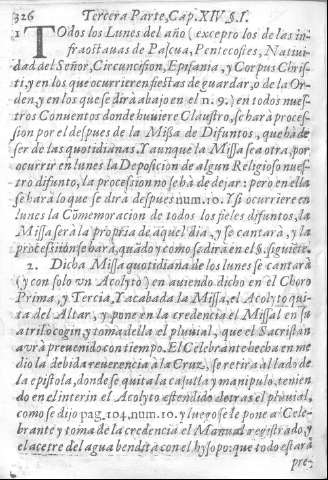 326 Tercera Parte, Cap. XIV. §. I.
1 TOdos los Lunes del año (excepto los de las in-
fraoctauas de Pascua, Pentecostes, Natiui-
dad del Señor, Circuncision, Epifania, y Corpus Chris-
ti, y en los que ocurrieren fiestas de guardar, ò de la Or-
den, y en los que se dirà abajo en el n. 9.) en todos nues-
tros Conuentos donde huuiere Claustro, se harà proces-
sion por el despues de la Missa de Difuntos, que hà de
ser de las quotidianas. Y aunque la Missa sea otra, por
ocurrir en lunes la Deposicion de algun Religioso nues-
tro difunto, la procession no se hà de dejar: pero en ella
se harà lo que se dirà despues num. 10. Y si ocurriere en
lunes la Comemoracion de todos los fieles difuntos, la
Missa serà la propria de aquel dia, y se cantarà, y la
procession se harà, quãdo y como se dirà en el §. siguiẽte.
2. Dicha Missa quotidiana de los lunes se cantarà
(y con solo vn Acolyto) en auiendo dicho en el Choro
Prima, y Tercia, Y acabada la Missa, el Acolyto qui-
ta del Altar, y pone en la credencia el Missal en su
atril o cogin, y toma della el pluuial, que el Sacristan
avrà preuenido con tiempo. El Celebrante hecha en me
dio la debida reuerencia à la Cruz, se retira al lado de
la epistola, donde se quita la casulla y manipulo, tenien
do en el interin el Acolyto estendido detras el pluuial,
como se dijo pag. 104, num. 10. y luego se le pone al Cele-
brante y toma de la credencia el Manual registrado, y
el acetre del agua bendita con el hysopo: que todo estarà
pre-